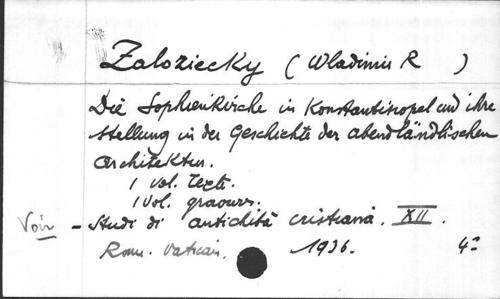 Zaloziecky (Wladimir R )
Die Sophienkirche in Konstantinopel und ihre
Stellung in der Geschichte der abendländlischen
Architektur.
1 vol. Texte.
1 vol. gravures.
Voir - Studi di antichità cristiana. XII.
Rome. Vatican. 1936. 4º